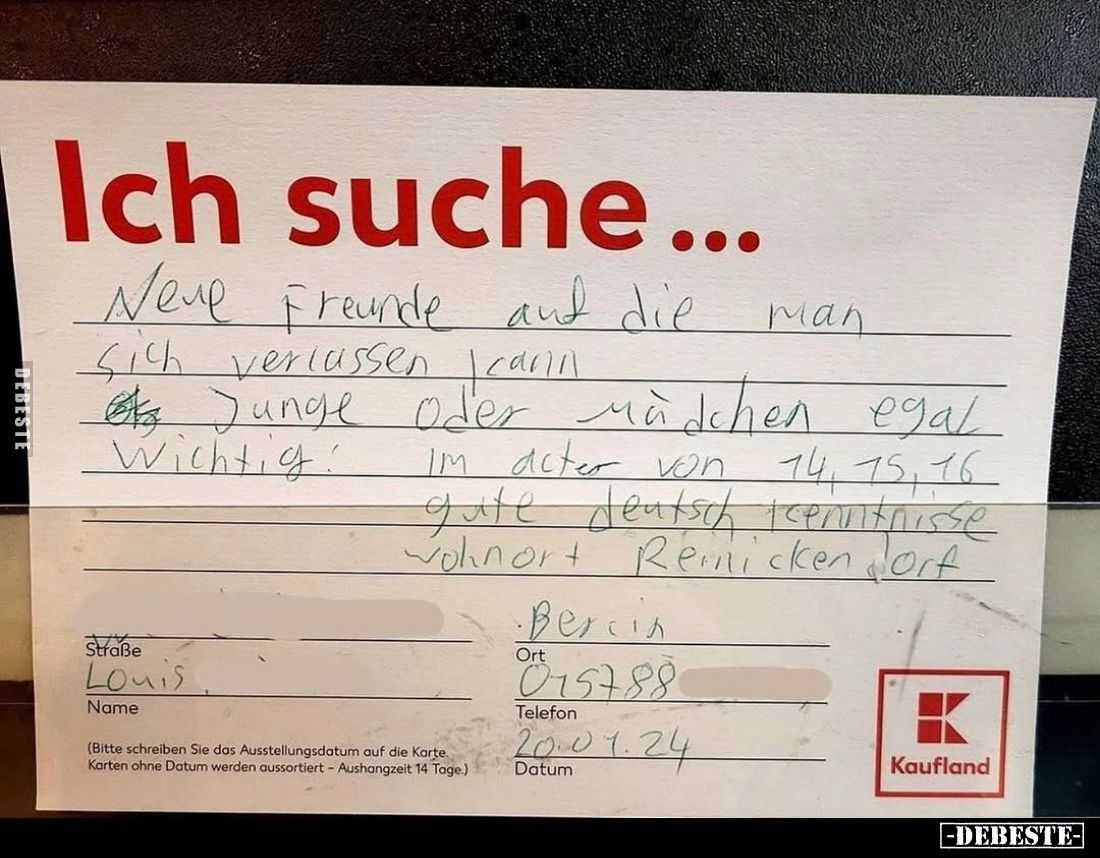 Ich suche...
Neue Freunde auf die man
sich verlassen kann
Junge oder Mädchen egal
Wichtig: im alter von 14, 15, 16
gute deutsch kenntnisse
wohnort Reinickendorf
Berlin
Straße
Ort
Louis
015788
Name
Telefon
(Bitte schreiben Sie das Ausstellungsdatum auf die Karte.
Karten ohne Datum werden aussortiert – Aushangzeit 14 Tage.)
20.01.24
Datum
Kaufland
DEBESTE
-DEBESTE-